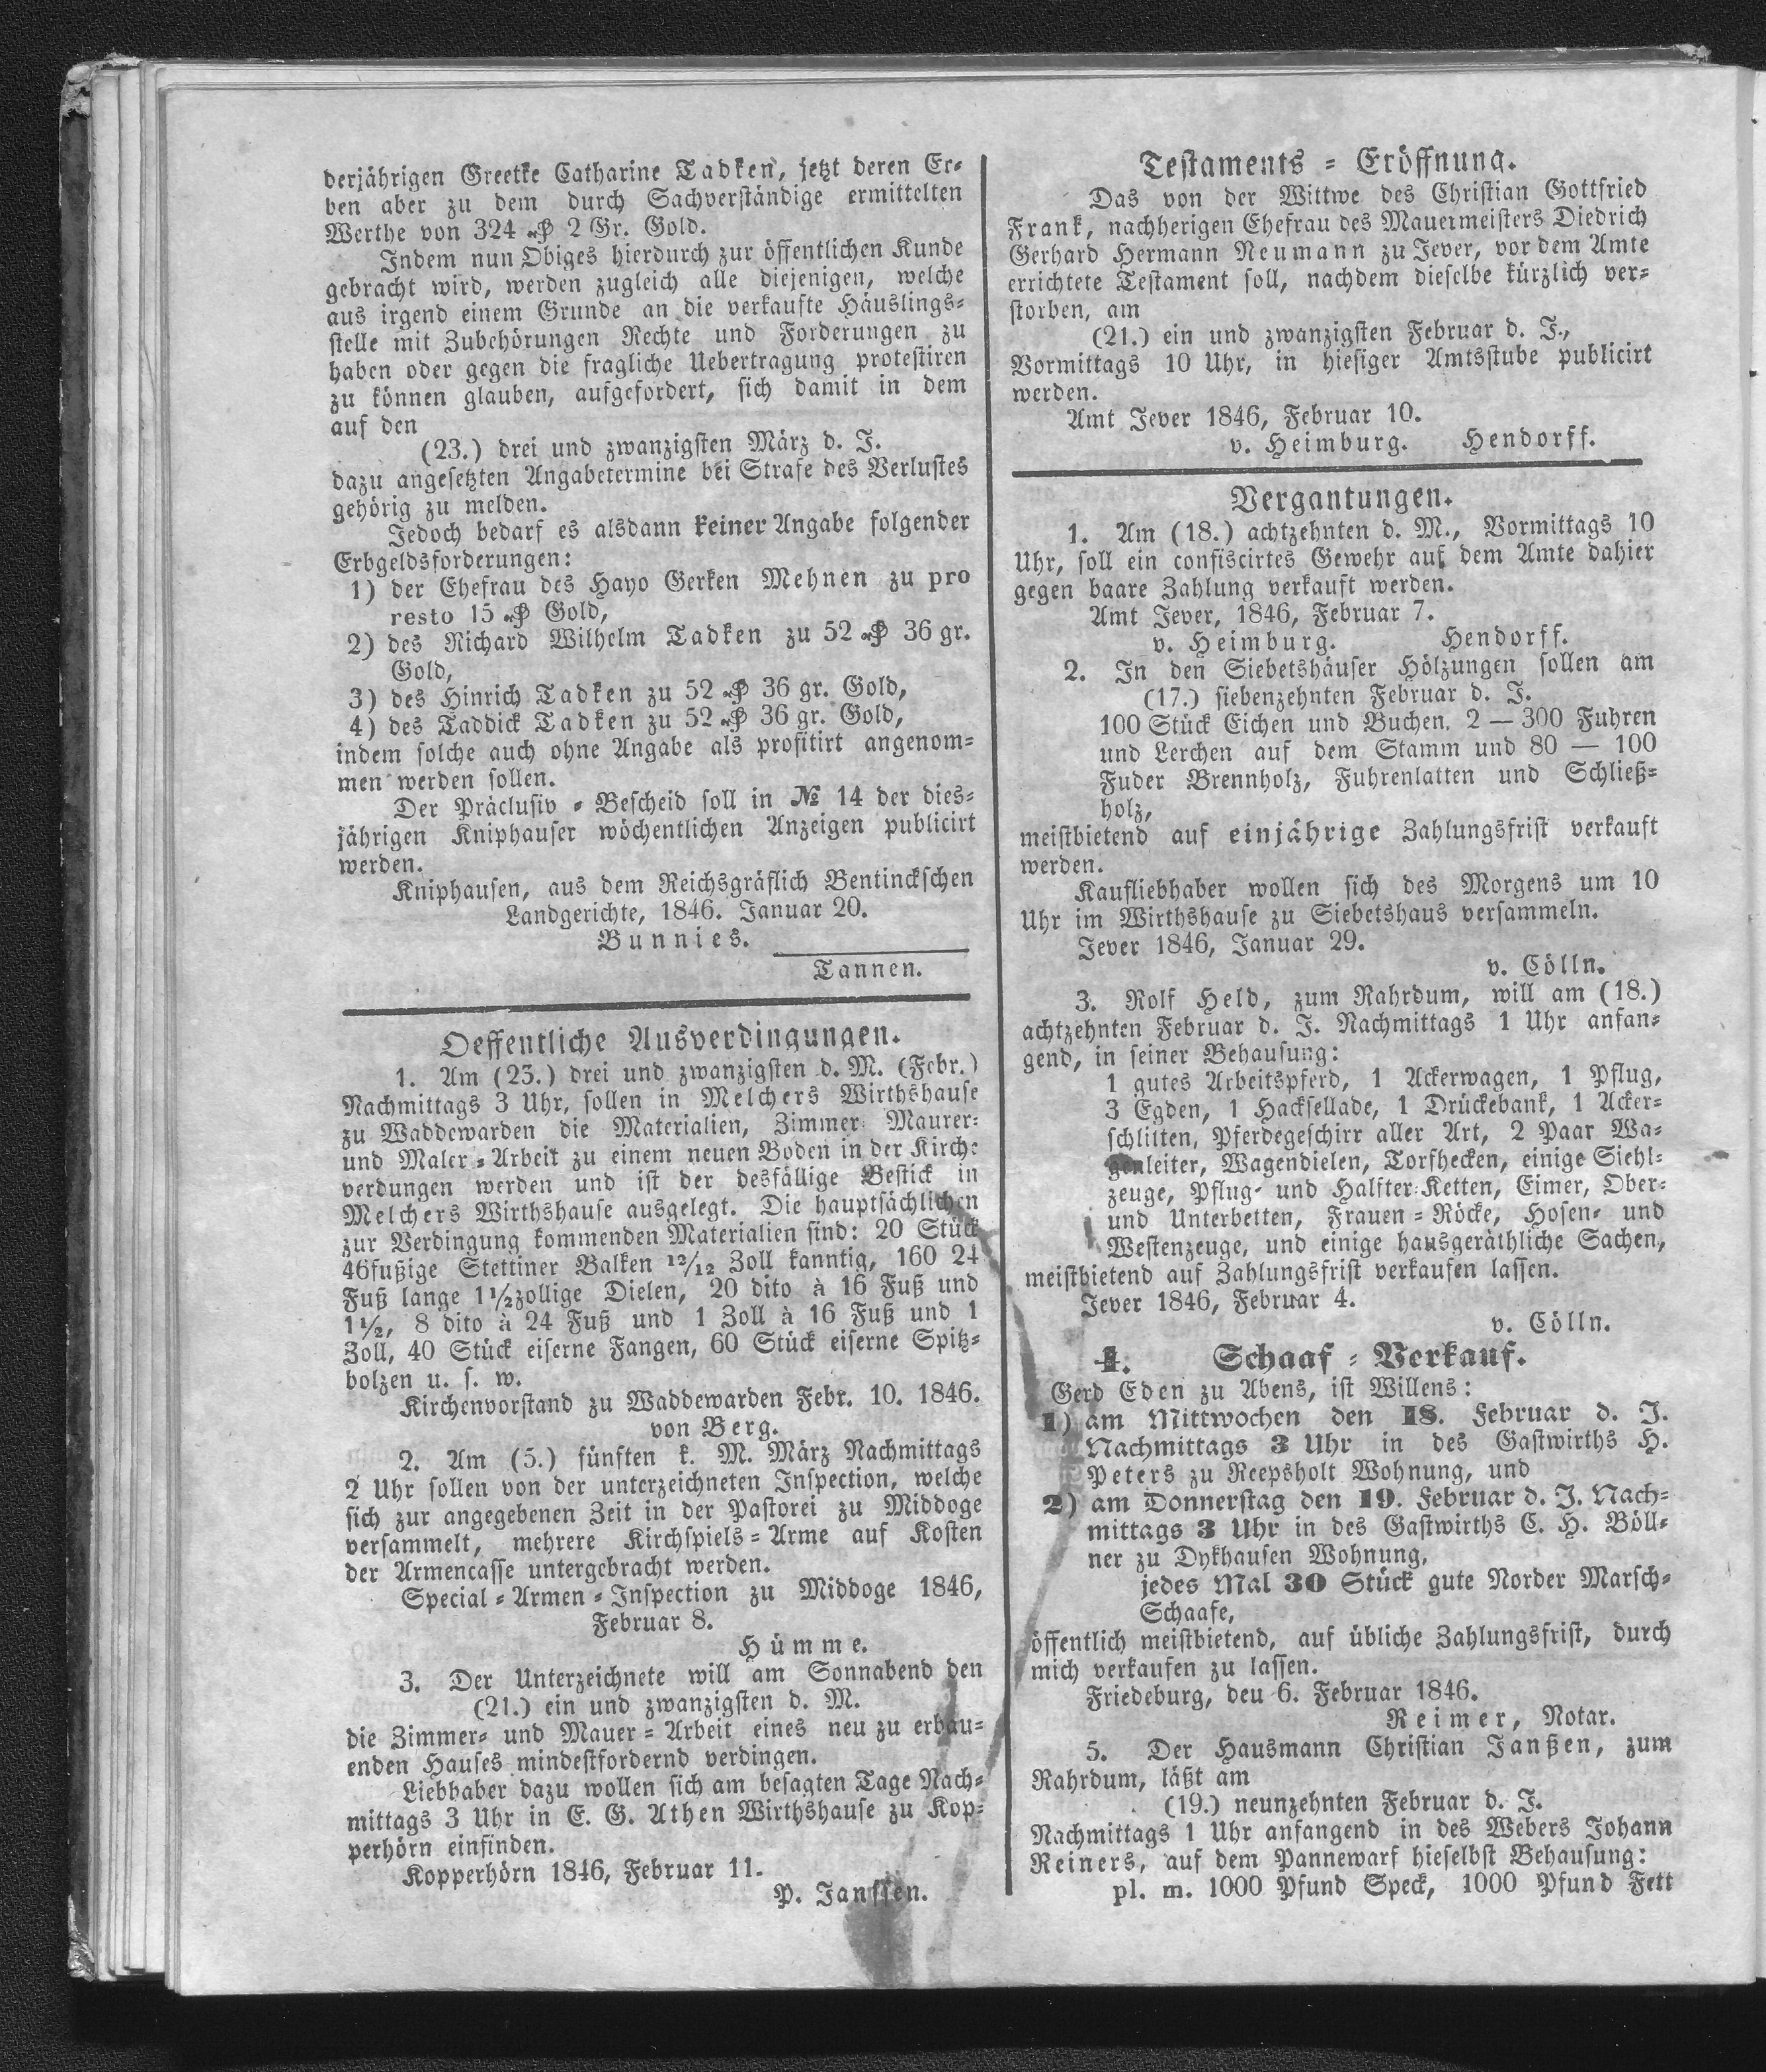 derjährigen Greetke Catharine Tadken, jetzt deren Er-
ben aber zu dem durch Sachverständige ermittelten
Werthe von 324 ₰ 2 Gr. Gold.
Indem nun Obiges hierdurch zur öffentlichen Kunde
gebracht wird, werden zugleich alle diejenigen, welche
aus irgend einem Grunde an die verkaufte Häuslings-
stelle mit Zubehörungen Rechte und Forderungen zu
haben oder gegen die fragliche Uebertragung protestiren
zu können glauben, aufgefordert, sich damit in dem
auf den
(23.) drei und zwanzigsten März d. J.
dazu angesetzten Angabetermine bei Strafe des Verlustes
gehörig zu melden.
Jedoch bedarf es alsdann keiner Angabe folgender
Erbgeldsforderungen:
1) der Ehefrau des Hayo Gerken Mehnen zu pro
resto 15 ₰ Gold,
2) des Richard Wilhelm Tadken zu 52 ₰ 36 gr.
Gold,
3) des Hinrich Tadken zu 52 ₰ 36 gr. Gold,
4) des Taddick Tadken zu 52 ₰ 36 gr. Gold,
indem solche auch ohne Angabe als profitirt angenom-
men werden sollen.
Der Präclusiv-Bescheid soll in № 14 der dies-
jährigen Kniphauser wöchentlichen Anzeigen publicirt
werden.
Kniphausen, aus dem Reichsgräflich Bentinckschen
Landgerichte, 1846. Januar 20.
Bunnies.
Tannen.
Oeffentliche Ausverdingungen.
1. Am (23.) drei und zwanzigsten d. M. (Febr.)
Nachmittags 3 Uhr, sollen in Melchers Wirthshause
zu Waddewarden die Materialien, Zimmer- Maurer-
und Maler-Arbeit zu einem neuen Boden in der Kirche
verdungen werden und ist der desfällige Bestick in
Melchers Wirthshause ausgelegt. Die hauptsächlichen
zur Verdingung kommenden Materialien sind: 20 Stück
46fußige Stettiner Balken 12/12 Zoll kanntig, 160 24
Fuß lange 1½zollige Dielen, 20 dito à 16 Fuß und
1½, 8 dito à 24 Fuß und 1 Zoll à 16 Fuß und 1
Zoll, 40 Stück eiserne Fangen, 60 Stück eiserne Spitz-
bolzen u. s. w.
Kirchenvorstand zu Waddewarden Febr. 10. 1846.
von Berg.
2. Am (5.) fünften k. M. März Nachmittags
2 Uhr sollen von der unterzeichneten Inspection, welche
sich zur angegebenen Zeit in der Pastorei zu Middoge
versammelt, mehrere Kirchspiels-Arme auf Kosten
der Armencasse untergebracht werden.
Special-Armen-Inspection zu Middoge 1846,
Februar 8.
Hümme.
3. Der Unterzeichnete will am Sonnabend den
(21.) ein und zwanzigsten d. M.
die Zimmer- und Mauer-Arbeit eines neu zu erbau-
enden Hauses mindestfordernd verdingen.
Liebhaber dazu wollen sich am besagten Tage Nach-
mittags 3 Uhr in E. G. Athen Wirthshause zu Kop-
perhörn einfinden.
Kopperhörn 1846, Februar 11.
P. Janssen.
Testaments-Eröffnung.
Das von der Wittwe des Christian Gottfried
Frank, nachherigen Ehefrau des Mauermeisters Diedrich
Gerhard Hermann Neumann zu Jever, vor dem Amte
errichtete Testament soll, nachdem dieselbe kürzlich ver-
storben, am
(21.) ein und zwanzigsten Februar d. J.,
Vormittags 10 Uhr, in hiesiger Amtsstube publicirt
werden.
Amt Jever 1846, Februar 10.
v. Heimburg. Hendorff.
Vergantungen.
1. Am (18.) achtzehnten d. M., Vormittags 10
Uhr, soll ein confiscirtes Gewehr auf dem Amte dahier
gegen baare Zahlung verkauft werden.
Amt Jever, 1846, Februar 7.
v. Heimburg. Hendorff.
2. In den Siebetshäuser Hölzungen sollen am
(17.) siebenzehnten Februar d. J.
100 Stück Eichen und Buchen, 2 — 300 Fuhren
und Lerchen auf dem Stamm und 80 — 100
Fuder Brennholz, Fuhrenlatten und Schließ-
holz,
meistbietend auf einjährige Zahlungsfrist verkauft
werden.
Kaufliebhaber wollen sich des Morgens um 10
Uhr im Wirthshause zu Siebetshaus versammeln.
Jever 1846, Januar 29.
v. Cölln.
3. Rolf Held, zum Rahrdum, will am (18.)
achtzehnten Februar d. J. Nachmittags 1 Uhr anfan-
gend, in seiner Behausung:
1 gutes Arbeitspferd, 1 Ackerwagen, 1 Pflug,
3 Egden, 1 Hacksellade, 1 Drückebank, 1 Acker-
schlitten, Pferdegeschirr aller Art, 2 Paar Wa-
genleiter, Wagendielen, Torfhecken, einige Siehl-
zeuge, Pflug- und Halfter-Ketten, Eimer, Ober-
und Unterbetten, Frauen-Röcke, Hosen- und
Westenzeuge, und einige hausgeräthliche Sachen,
meistbietend auf Zahlungsfrist verkaufen lassen.
Jever 1846, Februar 4.
v. Cölln.
4. Schaaf-Verkauf.
Gerd Eden zu Abens, ist Willens:
1) am Mittwochen den 18. Februar d. J.
Nachmittags 3 Uhr in des Gastwirths H.
Peters zu Reepsholt Wohnung, und
2) am Donnerstag den 19. Februar d. J. Nach-
mittags 3 Uhr in des Gastwirths C. H. Böll-
ner zu Dykhausen Wohnung,
jedes Mal 30 Stück gute Norder Marsch-
Schaafe,
öffentlich meistbietend, auf übliche Zahlungsfrist, durch
mich verkaufen zu lassen.
Friedeburg, deu 6. Februar 1846.
Reimer, Notar.
5. Der Hausmann Christian Janßen, zum
Rahrdum, läßt am
(19.) neunzehnten Februar d. J.
Nachmittags 1 Uhr anfangend in des Webers Johann
Reiners, auf dem Pannewarf hieselbst Behausung:
pl. m. 1000 Pfund Speck, 1000 Pfund Fett